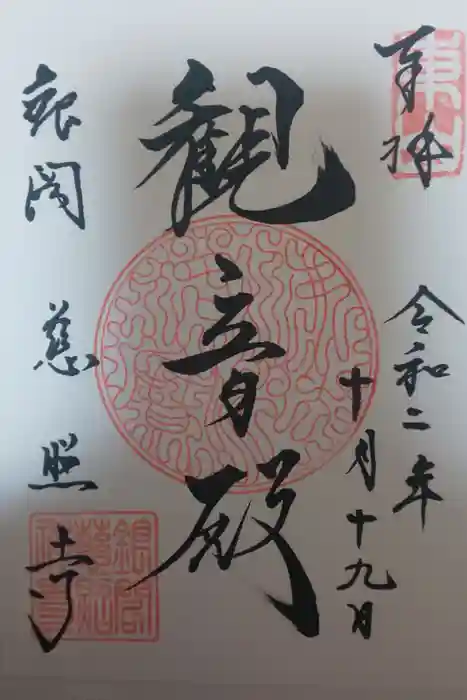 奉拝
令和二年
十月十九日
観音殿
銀閣 慈照寺